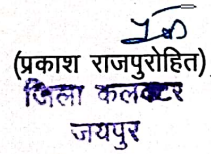 (प्रकाश राजपुरोहित)
जिला कलक्टर
जयपुर